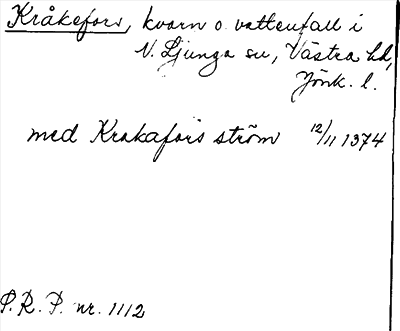 Kråkefors, kvarn o. vattenfall i
N. Ljunga sn, Västra hd,
Jönk. l.
med Krakafors ström 12/11 1374
S.R.P. nr. 1112